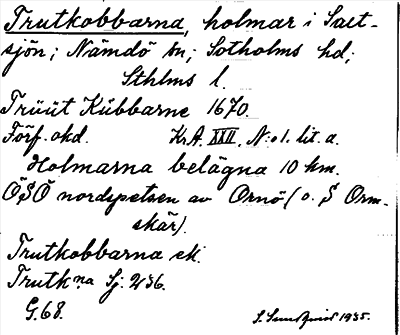 Trutkobbarna, holmar i Salt-
sjön; Nämdö sn; Sotholms hd;
Sthlms l.
Trüüt Kübbarne 1670.
Förf. okd. Kr.A. XXII, N:o 1. lit. a.
Holmarna belägna 10 km.
ÖSÖ nordspetsen av Ornö (o. S Orm-
skär).
Trutkobbarna ek.
Trutk:na Sj. 236.
G. 68.
S. Sundqvist 1935.